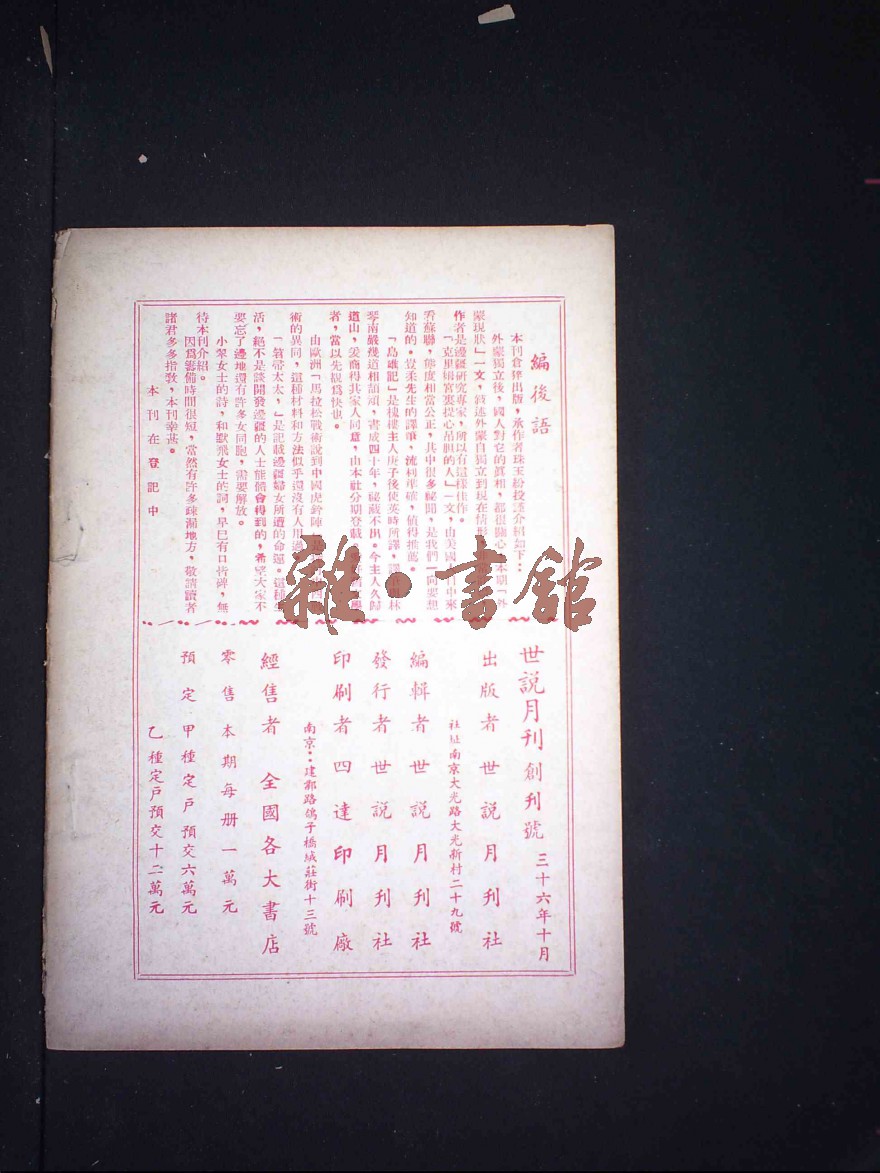 編後語
本刊倉猝出版,承作者珠玉紛投謹介紹如下:
外蒙獨立後,國人對它的眞相,都很關心,本期「外
蒙現狀」一文,敍述外蒙自獨立到現在情形
作者是邊疆研究專家,所以有這樣佳作。
「克里姆宮裏提心吊胆的人」一文,由美國 中來
看蘇聯,態度相當公正,其中很多祕聞,是我們一向要想
知道的。豈柔先生的譯筆,流利準確,值得推薦。
「島雄記」是槐樓主人庚子後使英時所譯, 林
琴南嚴幾道相頡頏,書成四十年,祕藏不出。今主人久歸
道山,爰商得其家人同意,由本社分期登載。 學
者,當以先覩爲快也。
由歐洲「馬拉松戰術說到中國虎鈐陣
術的異同,這種材料和方法似乎還沒有人用過。
「箬帶太太,」是記載邊疆婦女所遭的命運。這種生
活,絕不是談開發邊疆的人士能體會得到的,希望大家不
要忘了邊地還有許多女同胞,需要解放。
小翠女士的詩,和默飛女士的詞,早已有口皆碑,無
待本刊介紹。
因爲籌備時間很短,當然有許多疎漏地方,敬請讀者
諸君多多指敎,本刊幸甚。
本刊在登記中
世說月刊創刊號 三十六年十月
出版者 世說月刊社
社址南京大光路大光新村二十九號
編輯者 世說月刊社
發行者 世說月刊社
印刷者 四達印刷廠
南京:建鄴路鴿子橋絨莊街十三號
經售者 全國各大書店
零售 本期每册一萬元
預定 甲種定戶預交六萬元
乙種定戶預交十二萬元
雜·書館